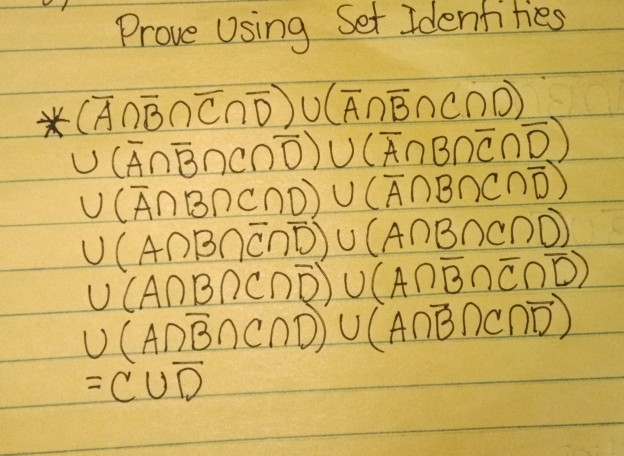 Prove Using Set Identities
*(A̅∩B̅∩C̅∩D̅)∪(A̅∩B̅∩C∩D)
∪(A̅∩B̅∩C∩D̅)∪(A̅∩B∩C̅∩D̅)
∪(A̅∩B∩C∩D)∪(A̅∩B∩C∩D̅)
∪(A∩B∩C̅∩D̅)∪(A∩B∩C∩D)
∪(A∩B∩C∩D̅)∪(A∩B̅∩C̅∩D̅)
∪(A∩B̅∩C∩D)∪(A∩B̅∩C∩D̅)
=C∪D̅